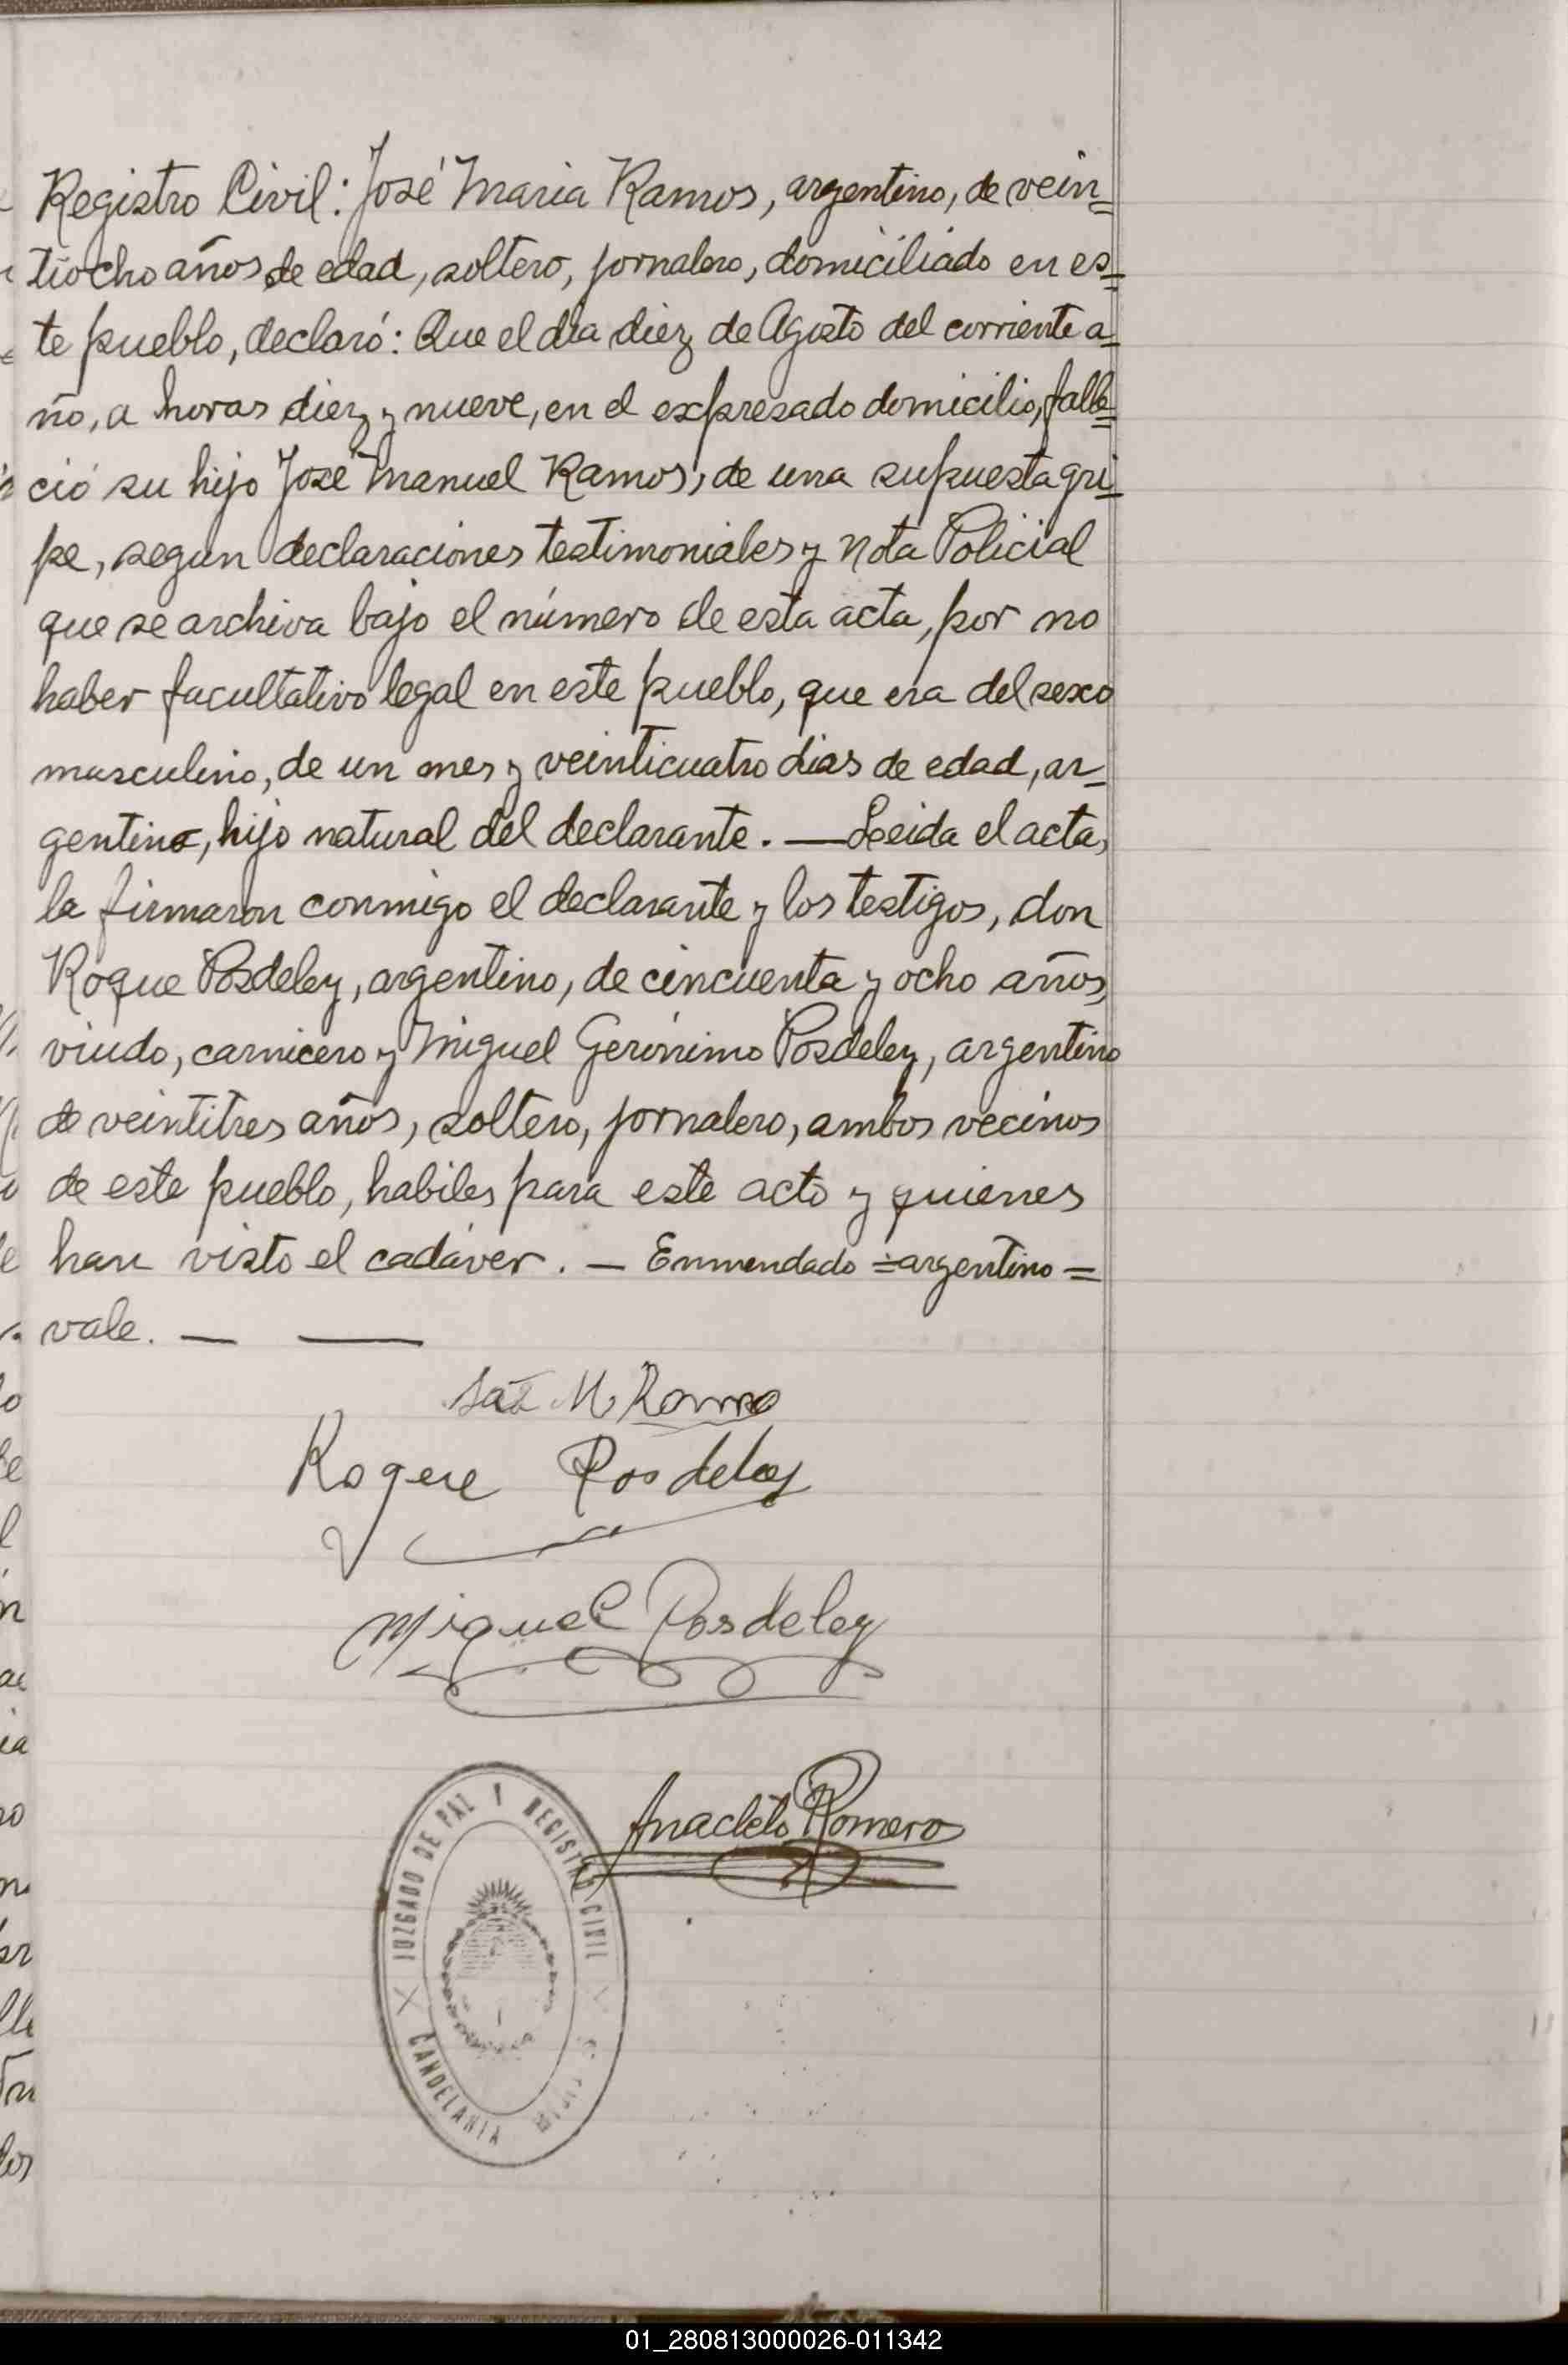 Registro Civil: José Maria Ramos, argentino, de vein=
tiocho años de edad, soltero, jornalero, domiciliado en es=
te pueblo, declaró: Que el dia diez de Agosto del corriente a=
ño, a horas diez y nueve, en el expresado domicilio, falle=
ció su hijo José Manuel Ramos, de una supuesta gri=
pe, segun declaraciones testimoniales y nota Policial
que se archiva bajo el número de esta acta, por no
haber facultativo legal en este pueblo, que era del sexo
masculino, de un mes y veinticuatro dias de edad, ar=
gentino, hijo natural del declarante. — Leida el acta,
la firmaron conmigo el declarante y los testigos, don
Roque Posdeley, argentino, de cincuenta y ocho años,
viudo, carnicero y Miguel Gerónimo Posdeley, argentino
de veintitres años, soltero, jornalero, ambos vecinos
de este pueblo, habiles para este acto y quienes
han visto el cadáver. — Enmendado = argentino =
vale. — —
M Ramo
Roque Posdeley
Miguel Posdeley
Anacleto Romero
JUZGADO DE PAZ Y REGISTRO CIVIL
CANDELARIA
01_280813000026-011342